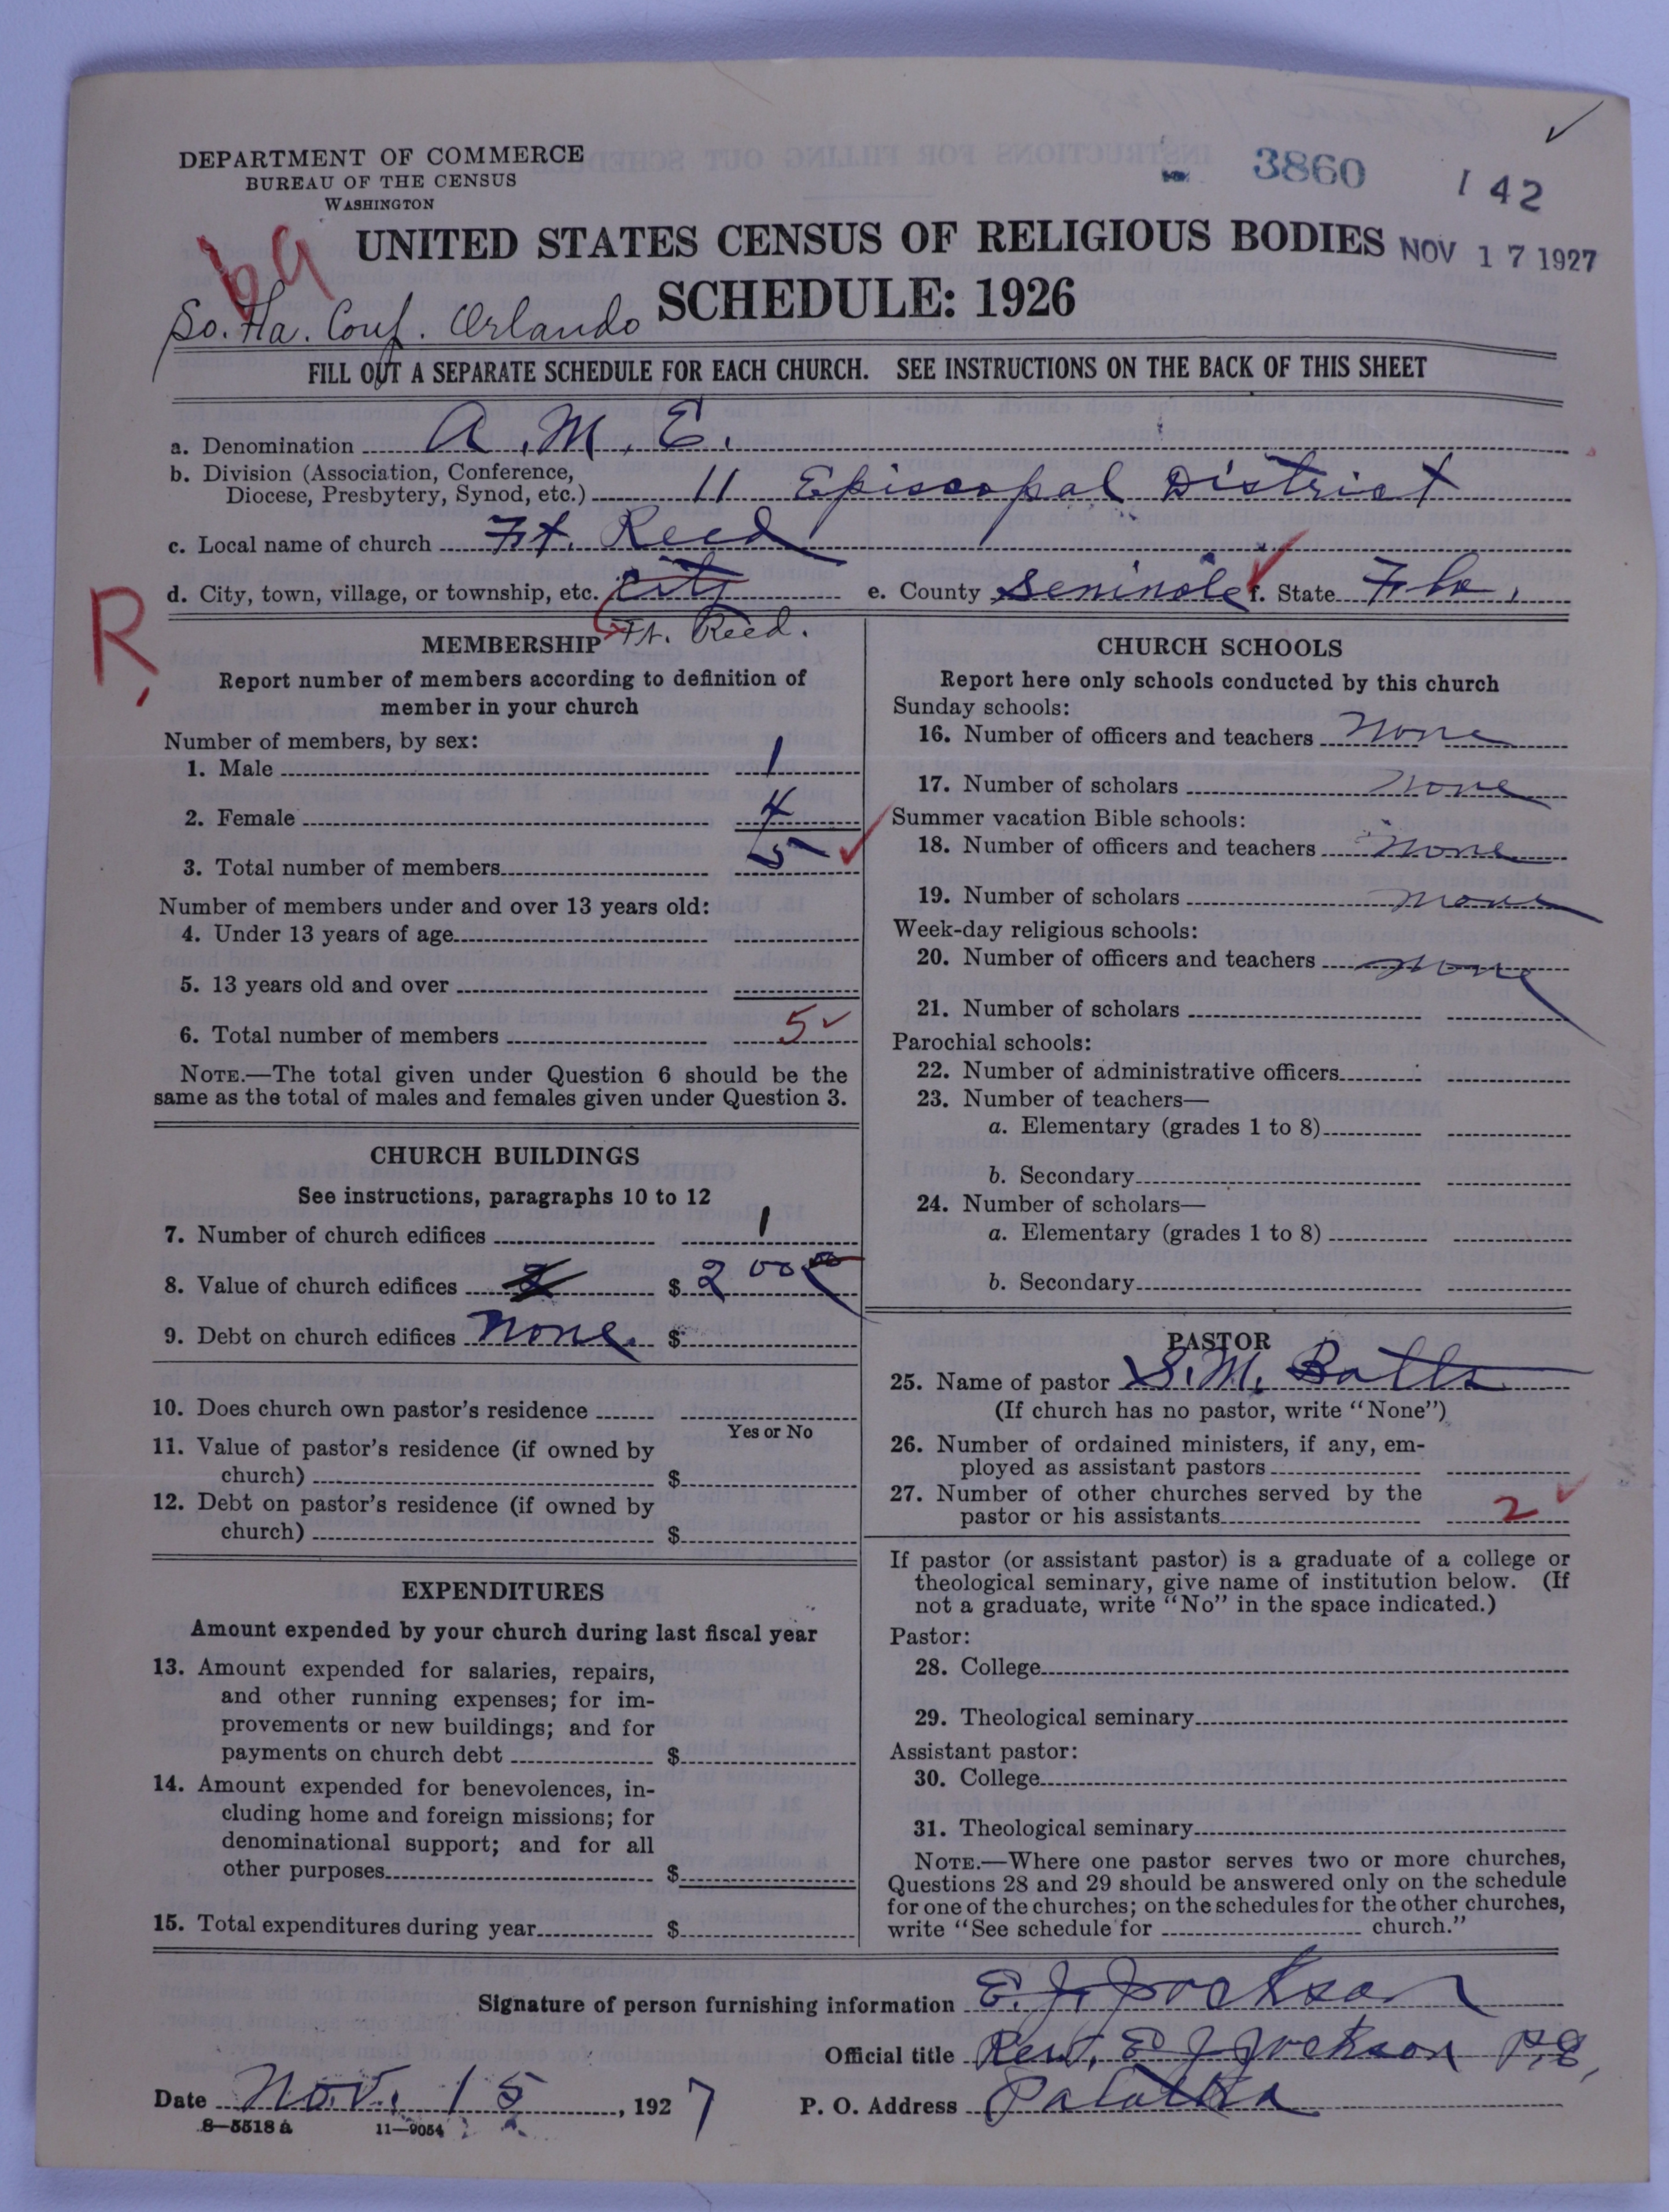 DEPARTMENT OF COMMERCE
BUREAU OF THE CENSUS
WASHINGTON
3860
142
UNITED STATES CENSUS OF RELIGIOUS BODIES
NOV 17 1927
SCHEDULE: 1926
So. Fla. Conf. Orlando
FILL OUT A SEPARATE SCHEDULE FOR EACH CHURCH. SEE INSTRUCTIONS ON THE BACK OF THIS SHEET
a. Denomination A. M. E.
b. Division (Association, Conference,
Diocese, Presbytery, Synod, etc.) 11 Episcopal District
c. Local name of church Ft. Reed
d. City, town, village, or township, etc. City e. County Seminole f. State Fla.
Ft. Reed.
R,
MEMBERSHIP
Report number of members according to definition of
member in your church
Number of members, by sex:
1. Male 1
2. Female 4
3. Total number of members 5
Number of members under and over 13 years old:
4. Under 13 years of age
5. 13 years old and over
6. Total number of members 5
NOTE.—The total given under Question 6 should be the
same as the total of males and females given under Question 3.
CHURCH BUILDINGS
See instructions, paragraphs 10 to 12
7. Number of church edifices 1
8. Value of church edifices $ 200 00
9. Debt on church edifices None. $
10. Does church own pastor's residence
Yes or No
11. Value of pastor's residence (if owned by
church) $
12. Debt on pastor's residence (if owned by
church) $
EXPENDITURES
Amount expended by your church during last fiscal year
13. Amount expended for salaries, repairs,
and other running expenses; for im-
provements or new buildings; and for
payments on church debt $
14. Amount expended for benevolences, in-
cluding home and foreign missions; for
denominational support; and for all
other purposes $
15. Total expenditures during year $
CHURCH SCHOOLS
Report here only schools conducted by this church
Sunday schools:
16. Number of officers and teachers none
17. Number of scholars none
Summer vacation Bible schools:
18. Number of officers and teachers none
19. Number of scholars none
Week-day religious schools:
20. Number of officers and teachers none
21. Number of scholars
Parochial schools:
22. Number of administrative officers
23. Number of teachers—
a. Elementary (grades 1 to 8)
b. Secondary
24. Number of scholars—
a. Elementary (grades 1 to 8)
b. Secondary
PASTOR
25. Name of pastor S. M. Batts
(If church has no pastor, write "None")
26. Number of ordained ministers, if any, em-
ployed as assistant pastors
27. Number of other churches served by the
pastor or his assistants 2
If pastor (or assistant pastor) is a graduate of a college or
theological seminary, give name of institution below. (If
not a graduate, write "No" in the space indicated.)
Pastor:
28. College
29. Theological seminary
Assistant pastor:
30. College
31. Theological seminary
NOTE.—Where one pastor serves two or more churches,
Questions 28 and 29 should be answered only on the schedule
for one of the churches; on the schedules for the other churches,
write "See schedule for church."
Signature of person furnishing information E. J. Jackson
Official title Rev. E J Jackson P.E.
Date Nov. 15, 1927 P. O. Address Palatka
8—5518 a 11—9054